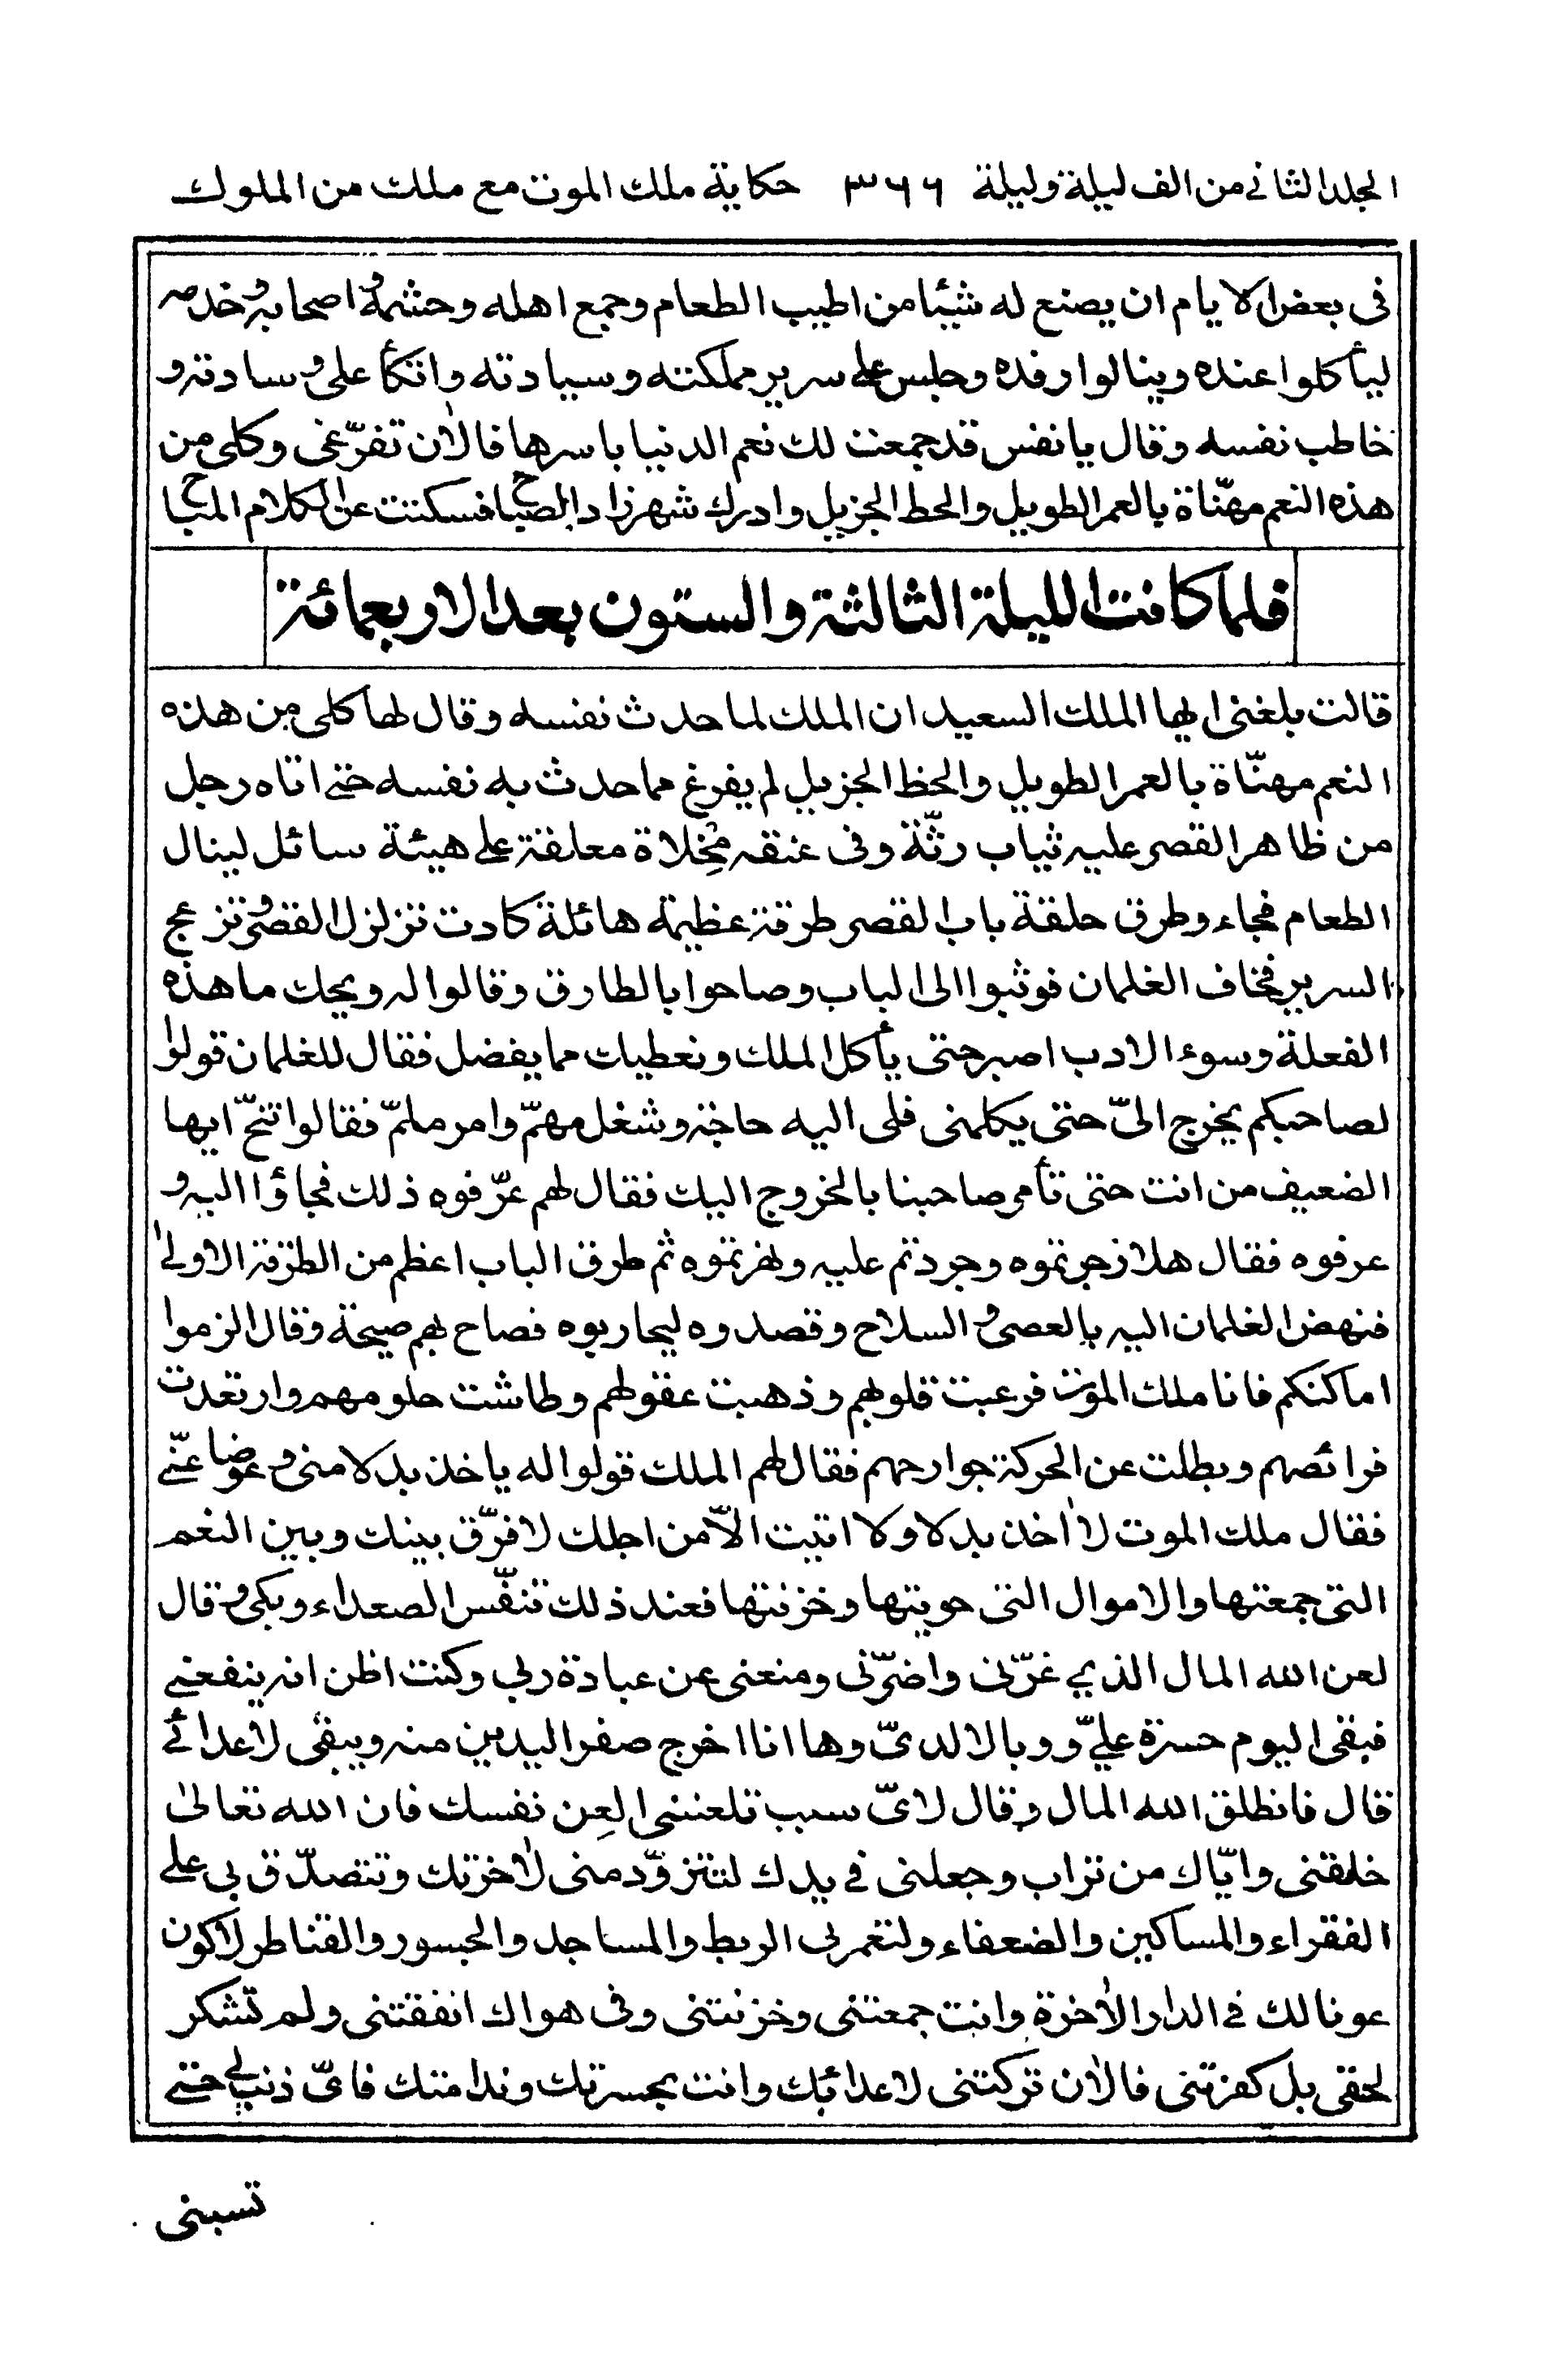 المجلد الثانی من الف ليلة وليلة ٣٦٦ حكاية ملك الموت مع ملك من الملوك
فی بعض الايام ان يصنع له شيئا من اطيب الطعام وجمع اهله وحشمه واصحابه وخدمه
ليأكلوا عنده وينالوا رفده وجلس علے سرير مملكته وسيادته واتكأ علی وسادته و
خاطب نفسه وقال يا نفس قد جمعت لك نعم الدنيا باسرها فالاٰن تفرّغی وكلی من
هذه النعم مهنّاة بالعمر الطويل والحظ الجزيل وادرك شهرزاد الصباح فسكتت عن الكلام المباح
فلما كانت الليلة الثالثة والستون بعد الاربعمائة
قالت بلغنی ايها الملك السعيد ان الملك لما حدث نفسه وقال لها كلی من هذه
النعم مهنّاة بالعمر الطويل والحظ الجزيل لم يفرغ مما حدث به نفسه حتے اتاه رجل
من ظاهر القصر عليه ثياب رثّة وفی عنقه مِخْلاة معلقة علے هيئة سائل لينال
الطعام فجاء وطرق حلقة باب القصر طرقة عظيمة هائلة كادت تزلزل القصر وتزعج
السرير فخاف الغلمان فوثبوا الی الباب وصاحوا بالطارق وقالوا له ويحك ما هذه
الفعلة وسوء الادب اصبر حتی يأكل الملك ونعطيك مما يفضل فقال للغلمان قولوا
لصاحبكم يخرج الیّ حتی يكلمنی فلی اليه حاجة وشغل مهمّ وامر ملمّ فقالوا تنحّ ايها
الضعيف من انت حتی تأمر صاحبنا بالخروج اليك فقال لهم عرّفوه ذلك فجاؤا اليه و
عرفوه فقال هلا زجرتموه وجردتم عليه ونهرتموه ثم طرق الباب اعظم من الطرقة الاولیٰ
فنهض الغلمان اليه بالعصی والسلاح وقصدوه ليحاربوه فصاح بهم صيحة وقال الزموا
اماكنكم فانا ملك الموت فرعبت قلوبهم وذهبت عقولهم وطاشت حلومهم وارتعدت
فرائصهم وبطلت عن الحركة جوارحهم فقال لهم الملك قولوا له ياخذ بدلا منی وعوضا عنّے
فقال ملك الموت لا اٰخذ بدلا ولا اتيت الّا من اجلك لافرّق بينك وبين النعم
التی جمعتها والاموال التی حويتها وخزنتها فعند ذلك تنفّس الصعداء وبكی وقال
لعن الله المال الذي غرّنی واضرّنی ومنعنی عن عبادة ربی وكنت اظن انه ينفعنے
فبقی اليوم حسرة عليّ ووبالا لدیّ وها انا اخرج صفر اليدين منه ويبقی لاعدائے
قال فانطلق الله المال وقال لایّ سبب تلعننی العِن نفسك فان الله تعالیٰ
خلقنی وايّاك من تراب وجعلنی فی يدك لتتزوّد منی لاٰخرتك وتتصدّق بی علے
الفقراء والمساكين والضعفاء ولتعمر بی الربط والمساجد والجسور والقناطر لاكون
عونا لك فی الدار الاٰخرة وانت جمعتنی وخزنتنی وفی هواك انفقتنی ولم تشكر
لحقی بل كفرتنی فالاٰن تركتنی لاعدائك وانت بحسرتك وندامتك فایّ ذنب لے حتے
تسبنی